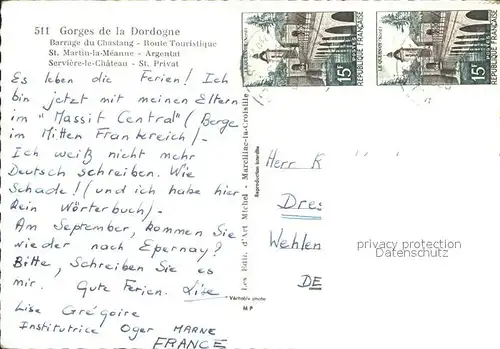 511 Gorges de la Dordogne
Barrage du Chastang - Route Touristique
St. Martin-la-Méanne - Argentat
Servière-le-Château - St. Privat
Es leben die Ferien! Ich
bin jetzt mit meinen Eltern
im "Massif Central" (Berge
im Mitten Frankreich) -
Ich weiß nicht mehr
Deutsch schreiben. Wie
Schade! (und ich habe hier
kein Wörterbuch) -
Am September, kommen Sie
wieder nach Epernay?
Bitte, Schreiben Sie es
mir. Gute Ferien. Lise
Lise Grégoire
Institutrice Oger MARNE
FRANCE
Les Edit. d'Art Michel - Marcillac-la-Croisille
Reproduction interdite
Véritable photo
M P
LE QUESNOY (Nord)
15F
REPUBLIQUE FRANÇAISE
LE QUESNOY (Nord)
15F
REPUBLIQUE FRANÇAISE
Herr K
Dres
Wehlen
DE
privacy protection
Datenschutz